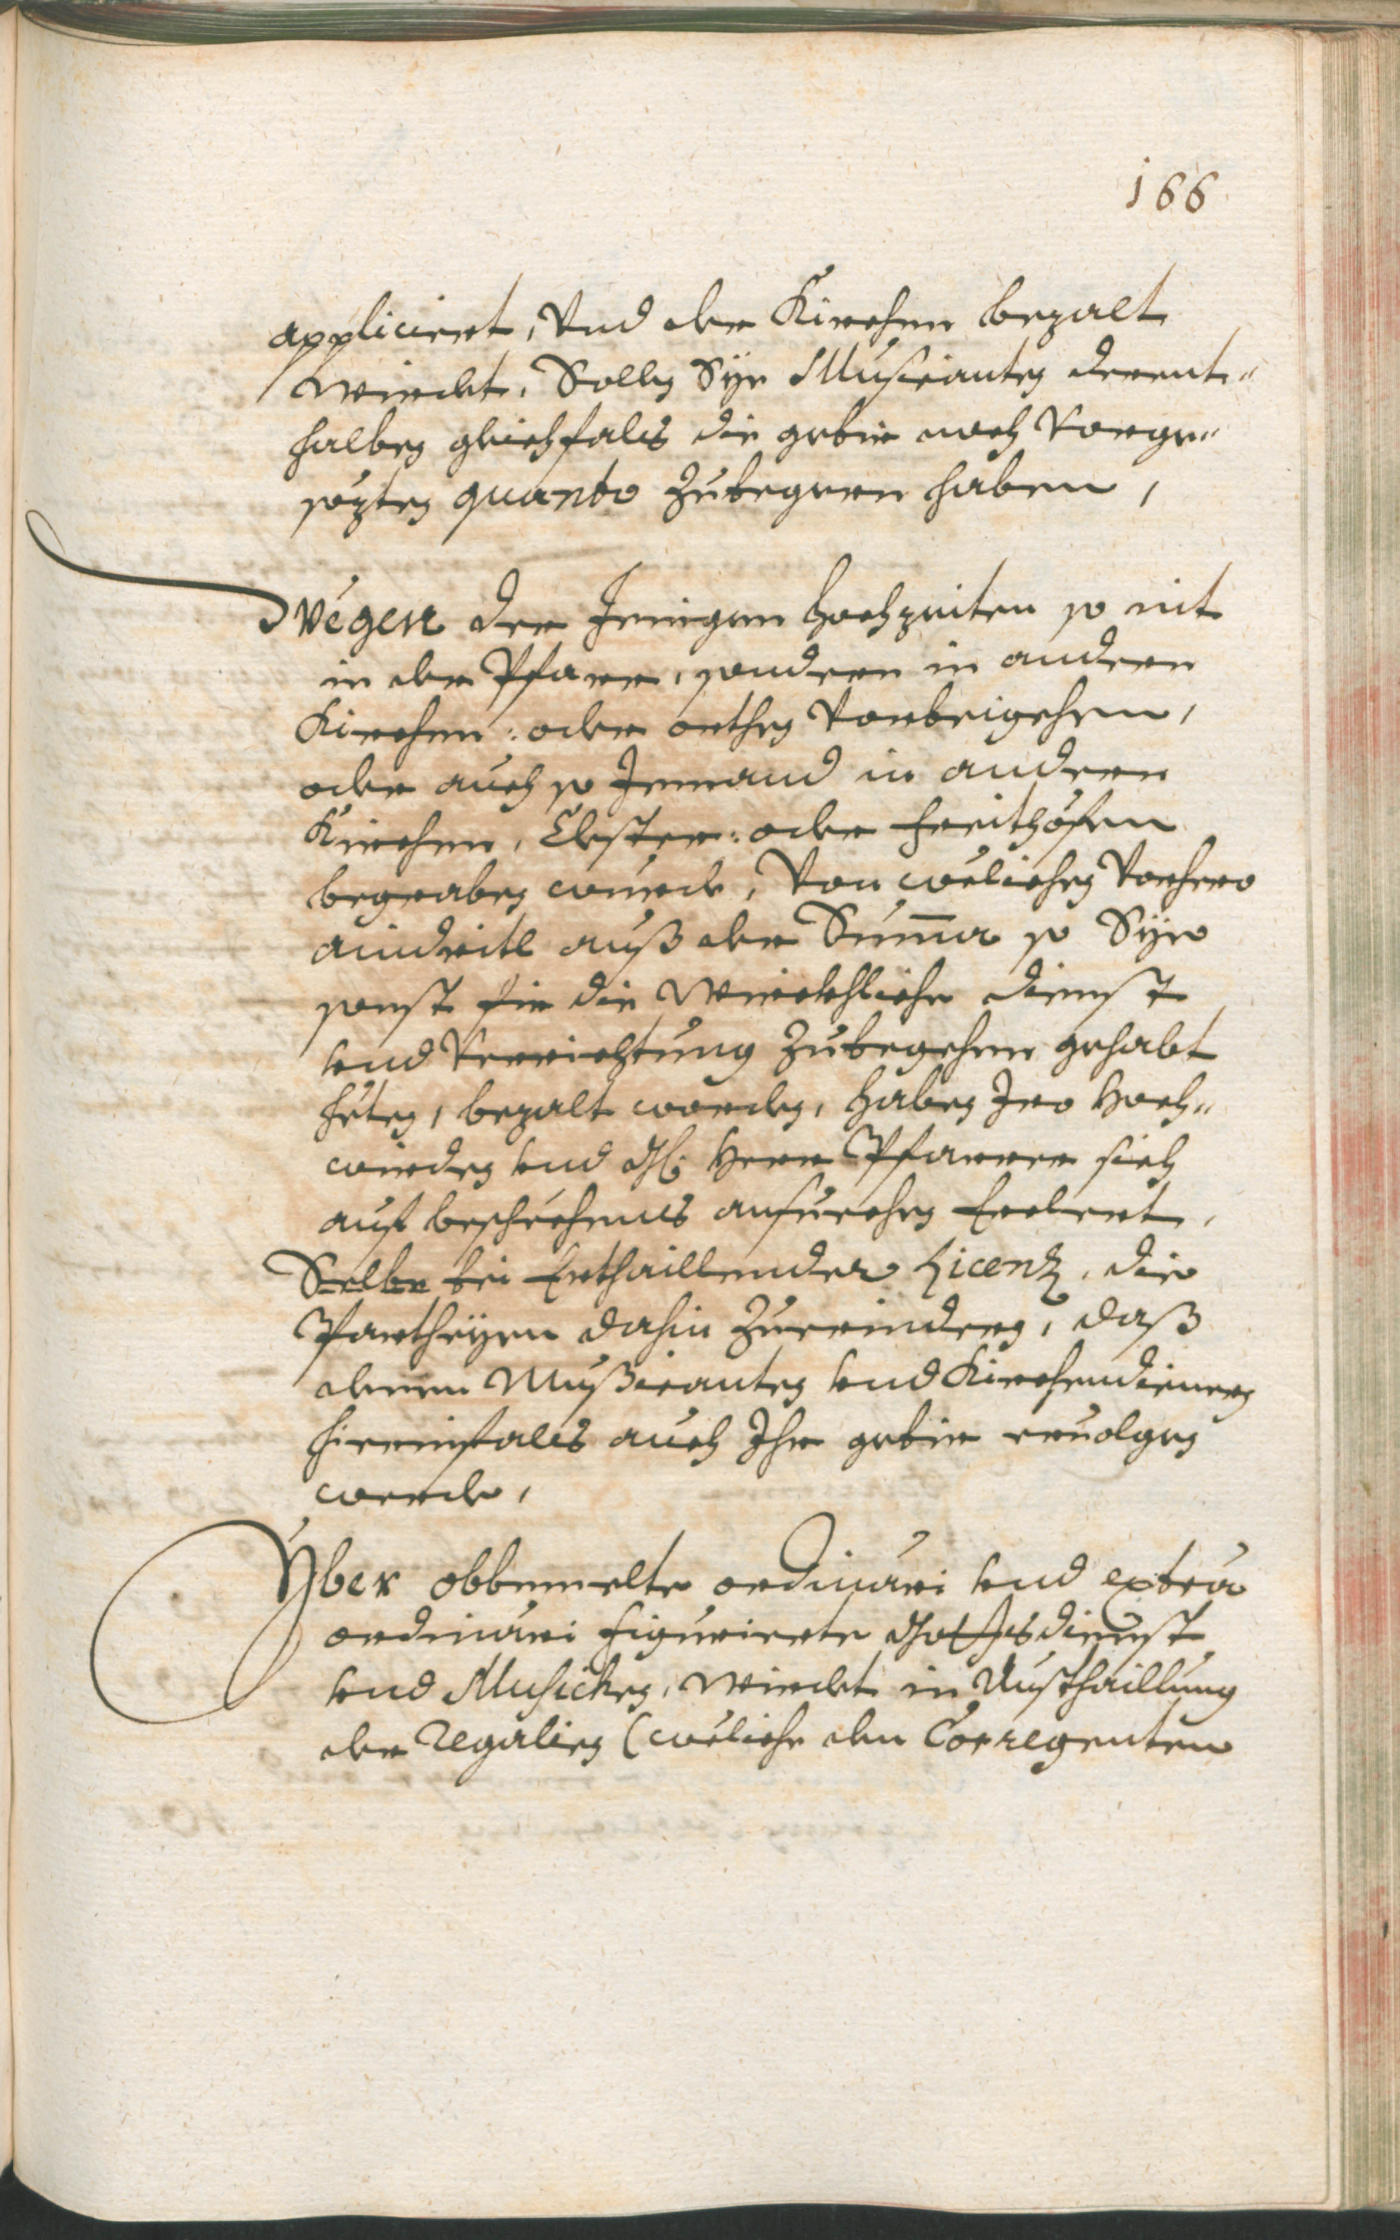 166
appliciert, Vnd der Kirchen bezalt
wirdet, Sollen Sye Musicanten derent-
halben gleichfals die gebir nach Vorge-
sözten quanto Zubegeren haben,
Wegen der Jenigen hochzeiten so nit
in der Pfarr, sondern in andern
Kirchen: oder orthen Vorbeigehen,
oder auch so Jemand in andern
Kirchen, Clöster: oder Freithöfen
begraben wurde, Von welichen Vorhero
ain dritl auß der Summa so Sye
sonst fir die Wirckhliche dienst
vnd Verrichtung Zubegehren gehabt
heten, bezalt worden, haben Iro Hoch-
wirden vnd Herr Pfarrer sich
auf beschehenes ansuechen Erclert,
Selbe bei Erthaillender Licenz, die
Partheyen dahin Zuerindern, daß
denen Mußicanten vnd Kirchendienern
hierinfals auch Ihr gebir eruolgen
werde,
Yber obbemelte ordinari vnd extra
ordinari figurierte Gottsdienst
vnd Musicken, wirdet in Austhaillung
der Regalien (weliche den Corregenten